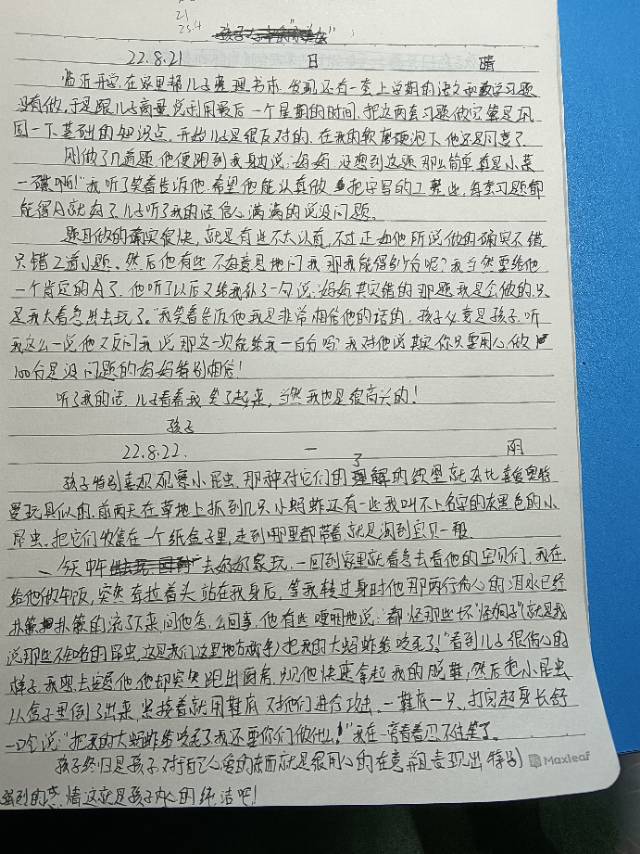 21
22.8.21 日 晴
临近开学,在家里帮儿子整理书本,发现还有一套上学期的语文和数学习题
没有做,于是跟儿子商量说利用最后一个星期的时间,把这两套习题做完算是巩
固一下基础的知识点,开始儿子是很反对的,在我的软磨硬泡下他还是同意了。
刚做了几道题他便跑到我身边说:妈妈,没想到这题那么简单,真是小菜
一碟啊!"我听了笑着告诉他,希望他能认真做,把字写的工整些,每套习题都
能得A就好了,儿子听了我的话信心满满的说没问题。
题目做的确实很快,就是有些不太认真,不过正如他所说做的确实不错
只错了道小题。然后他有些不好意思地问我那我能得多少分呢?我当然要给他
一个肯定的A了,他听了以后又给我补了一句说:妈妈其实错的那题我是会做的,只
是我太着急出去玩了。"我笑着告诉他我是非常相信他的话的,孩子必竟是孩子,听
我这么一说他又反问我说那这一次能给我一百分吗?我对他说其实你只要用心做
100分是没问题的妈妈特别相信!
听了我的话,儿子看着我笑了起来,当然我也是很高兴的!
孩子
22.8.22. 一 阴
孩子特别喜欢观察小昆虫,那种对它们的了解的欲望就好比喜爱奥特
曼玩具似的,前两天在草地上抓到几只小蚂蚱还有一些我叫不上名字的灰黑色的小
昆虫,把它们收集在一个纸盒子里,走到哪里都带着就是淘到宝贝一般
今天中午去奶奶家玩,一回到家里就着急去看他的宝贝们,我在
给他做午饭,突然耷拉着头站在我身后,等我转过身时他那两行伤心的泪水已经
扑簌扑簌的流了下来,问他怎么回事,他有些哽咽地说:都怪那些坏"怪桐子"(就是我
说那些不知名的昆虫,这是我们这里地方称号)把我的大蚂蚱给咬死了!"看到儿子很伤心的
样子,我想去安慰他,他却突然跑出困角,只见他快速拿起我的脱鞋,然后把小昆虫
从盒子里倒了出来,紧接着就用鞋底不对他们进行攻击,一鞋底一只,打完起身长舒
一口气说:"把我的大蚂蚱给咬死了我还要你们做什么!"我在一旁看着忍不住笑了。
孩子终归是孩子,对于自己心爱的东西就是很用心的在意,并且表现出特别
强烈的感情这就是孩子内心的纯洁吧!
Maxleaf